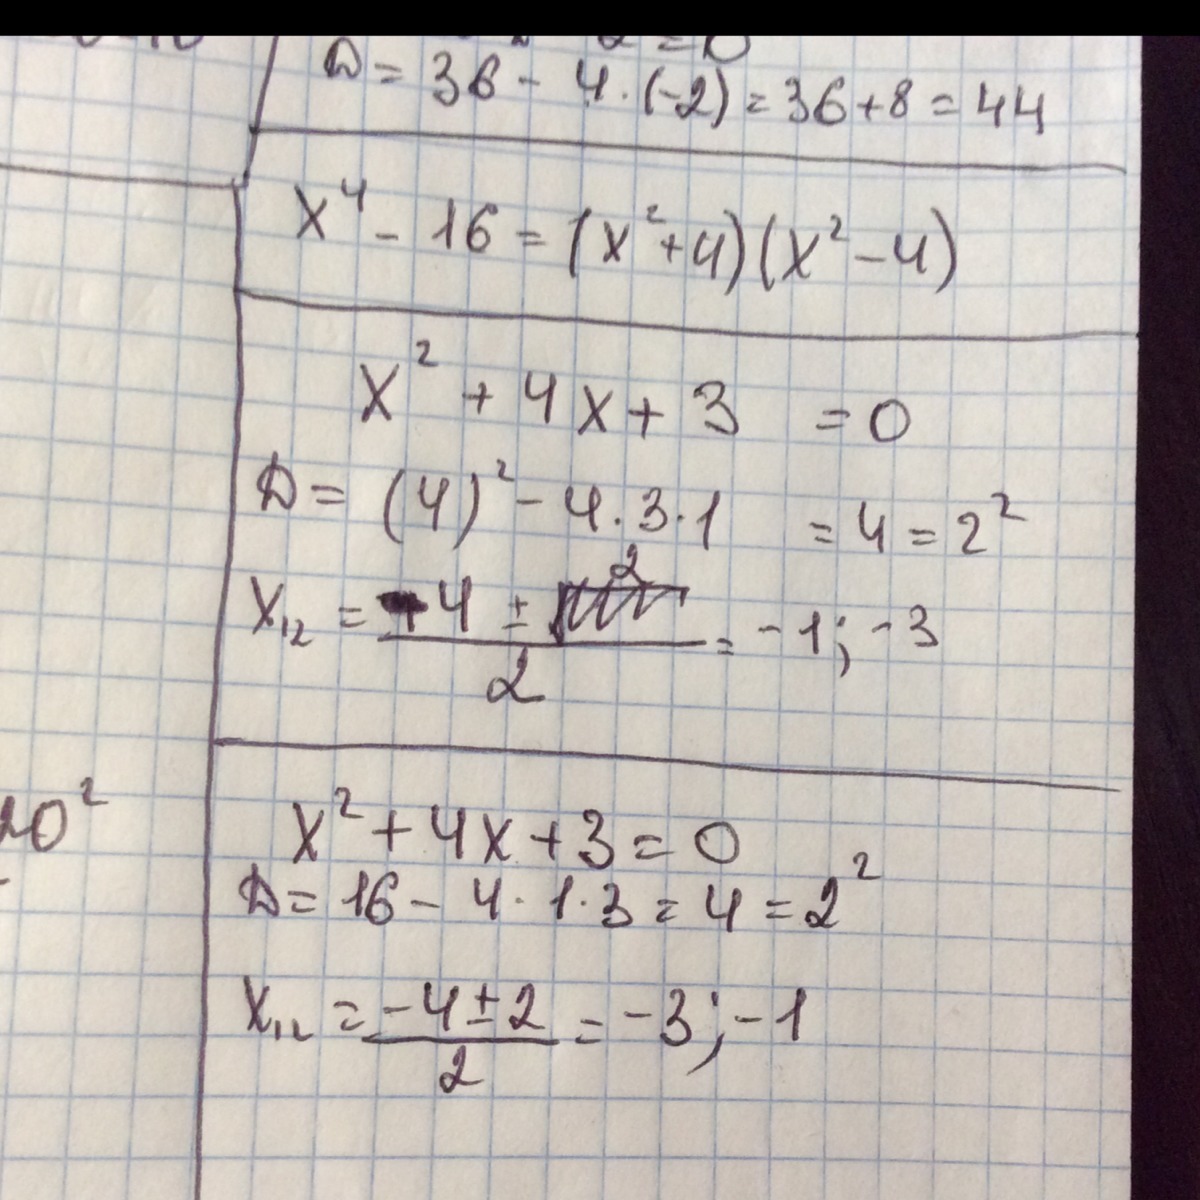 D = 36 - 4 · (-2) = 36 + 8 = 44
x⁴ - 16 = (x² + 4)(x² - 4)
x² + 4x + 3 = 0
D = (4)² - 4 · 3 · 1 = 4 = 2²
x₁₂ = (-4 ± 2)/2 = -1; -3
20²
x² + 4x + 3 = 0
D = 16 - 4 · 1 · 3 = 4 = 2²
x₁₂ = (-4 ± 2)/2 = -3; -1